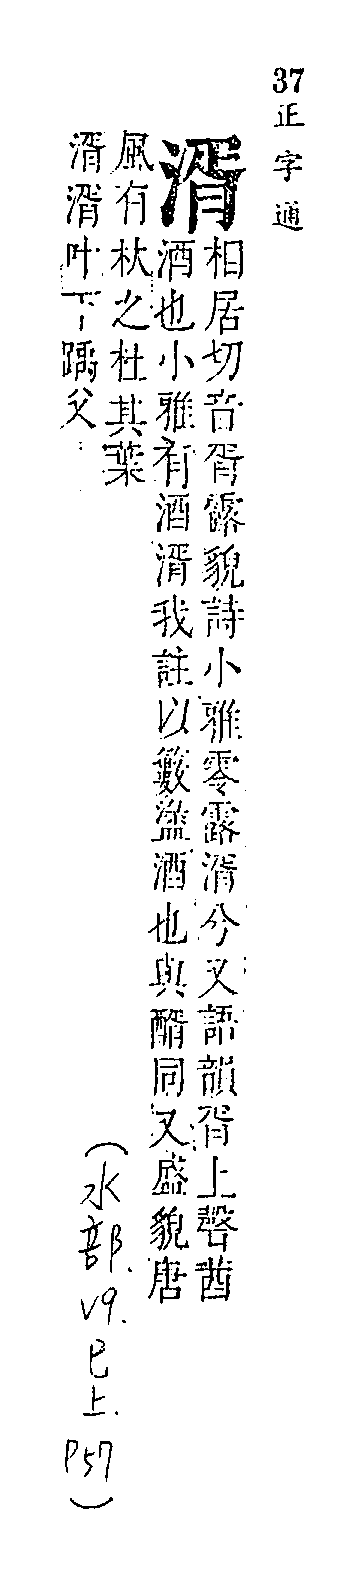 37正字通
湑相居切音胥露貌詩小雅零露湑兮又語韻胥上聲莤
酒也小雅有酒湑我註以籔漉酒也與醑同又盛貌唐
風有杕之杜其葉
湑湑叶下踽父
(水部.V9.巳上.P57)